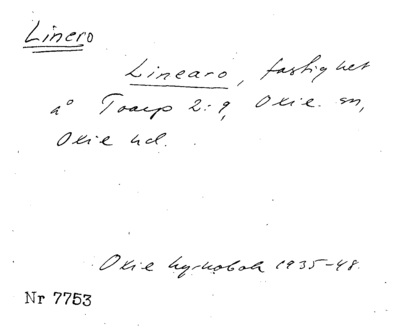 Linero
Linearo, fastighet
å Toarp 2:9, Oxie sn,
Oxie hd.
Oxie kyrkobok 1935-48.
Nr 7753